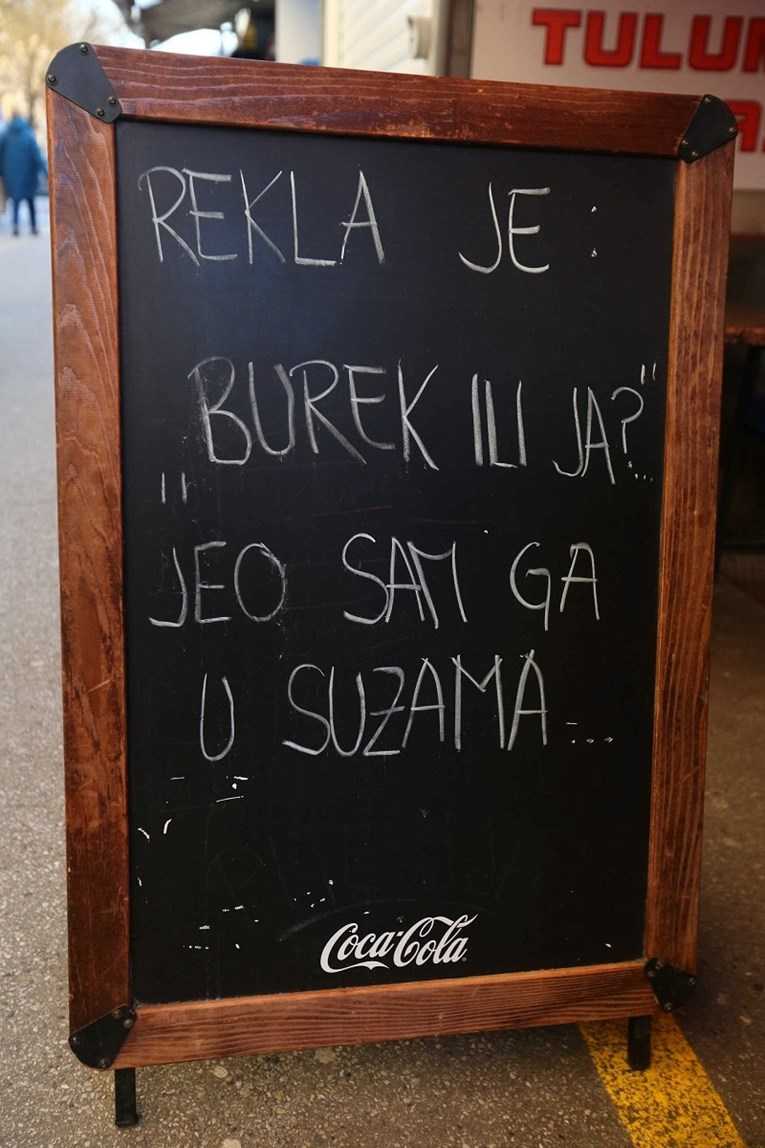 TULUM
REKLA JE :
„BUREK ILI JA?..."
JEO SAM GA
U SUZAMA...
Coca-Cola